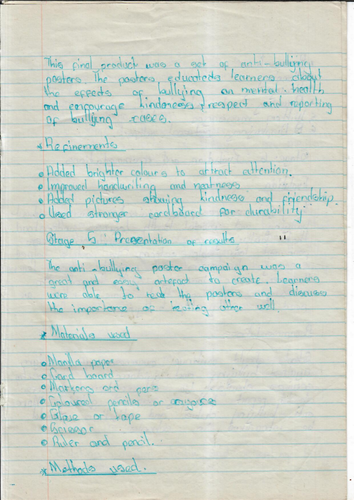 This final product was a set of anti-bullying
posters. The posters educated learners about
the effects of bullying on mental health
and encourage kindness, respect and reporting
of bullying cases.
* Refinements
• Added brighter colours to attract attention.
• Improved handwriting and neatness
• Added pictures showing kindness and friendship.
• Used stronger cardboard for durability
Stage 5: Presentation of results
The anti-bullying poster campaign was a
great and easy artefact to create. Learners
were able to read the posters and discuss
the importance of other well
* Materials used
• Manila paper
• Card board
• Markers and pens
• Coloured pencils or
• Glue or tape
• Scissor
• Ruler and pencil.
* Methods used.